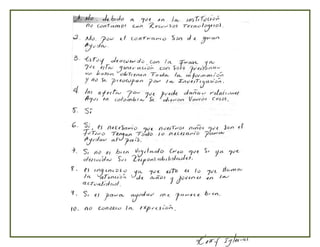 1. No debido a que en la institución
no contamos con Recursos Tecnologicos.
2. No. Por el contrario Son de gran
Ayuda.
3. Estoy desacuerdo con la frase ya
que esta generación con solo presionar
un boton obtienen Toda la información
y no se preocupan por la Investigación.
4. las afecta por que puede dañar relaciones
Aqui en colombia Se dieron Varios casos.
5. Si
6. Si, es necesario que nuestros niños que son el
futuro Tengan Todo lo necesario para
Ayudar al país.
7. Si no es bien Vigilado Creo que Si ya que
descuidan Sus Responsabilidades.
8. es ingenioso ya que esto es lo que llama
la atención de niños y jovenes en la
actualidad.
9. Si es para ayudar me parece bien.
10. no conozco la expresión.
Iglesias